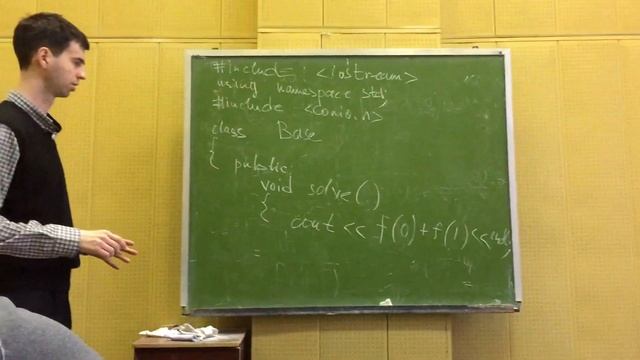 #include <iostream>
using namespace std;
#include <conio.h>
class Base
{
public:
void solve()
{
cout << f(0) + f(1) << endl;